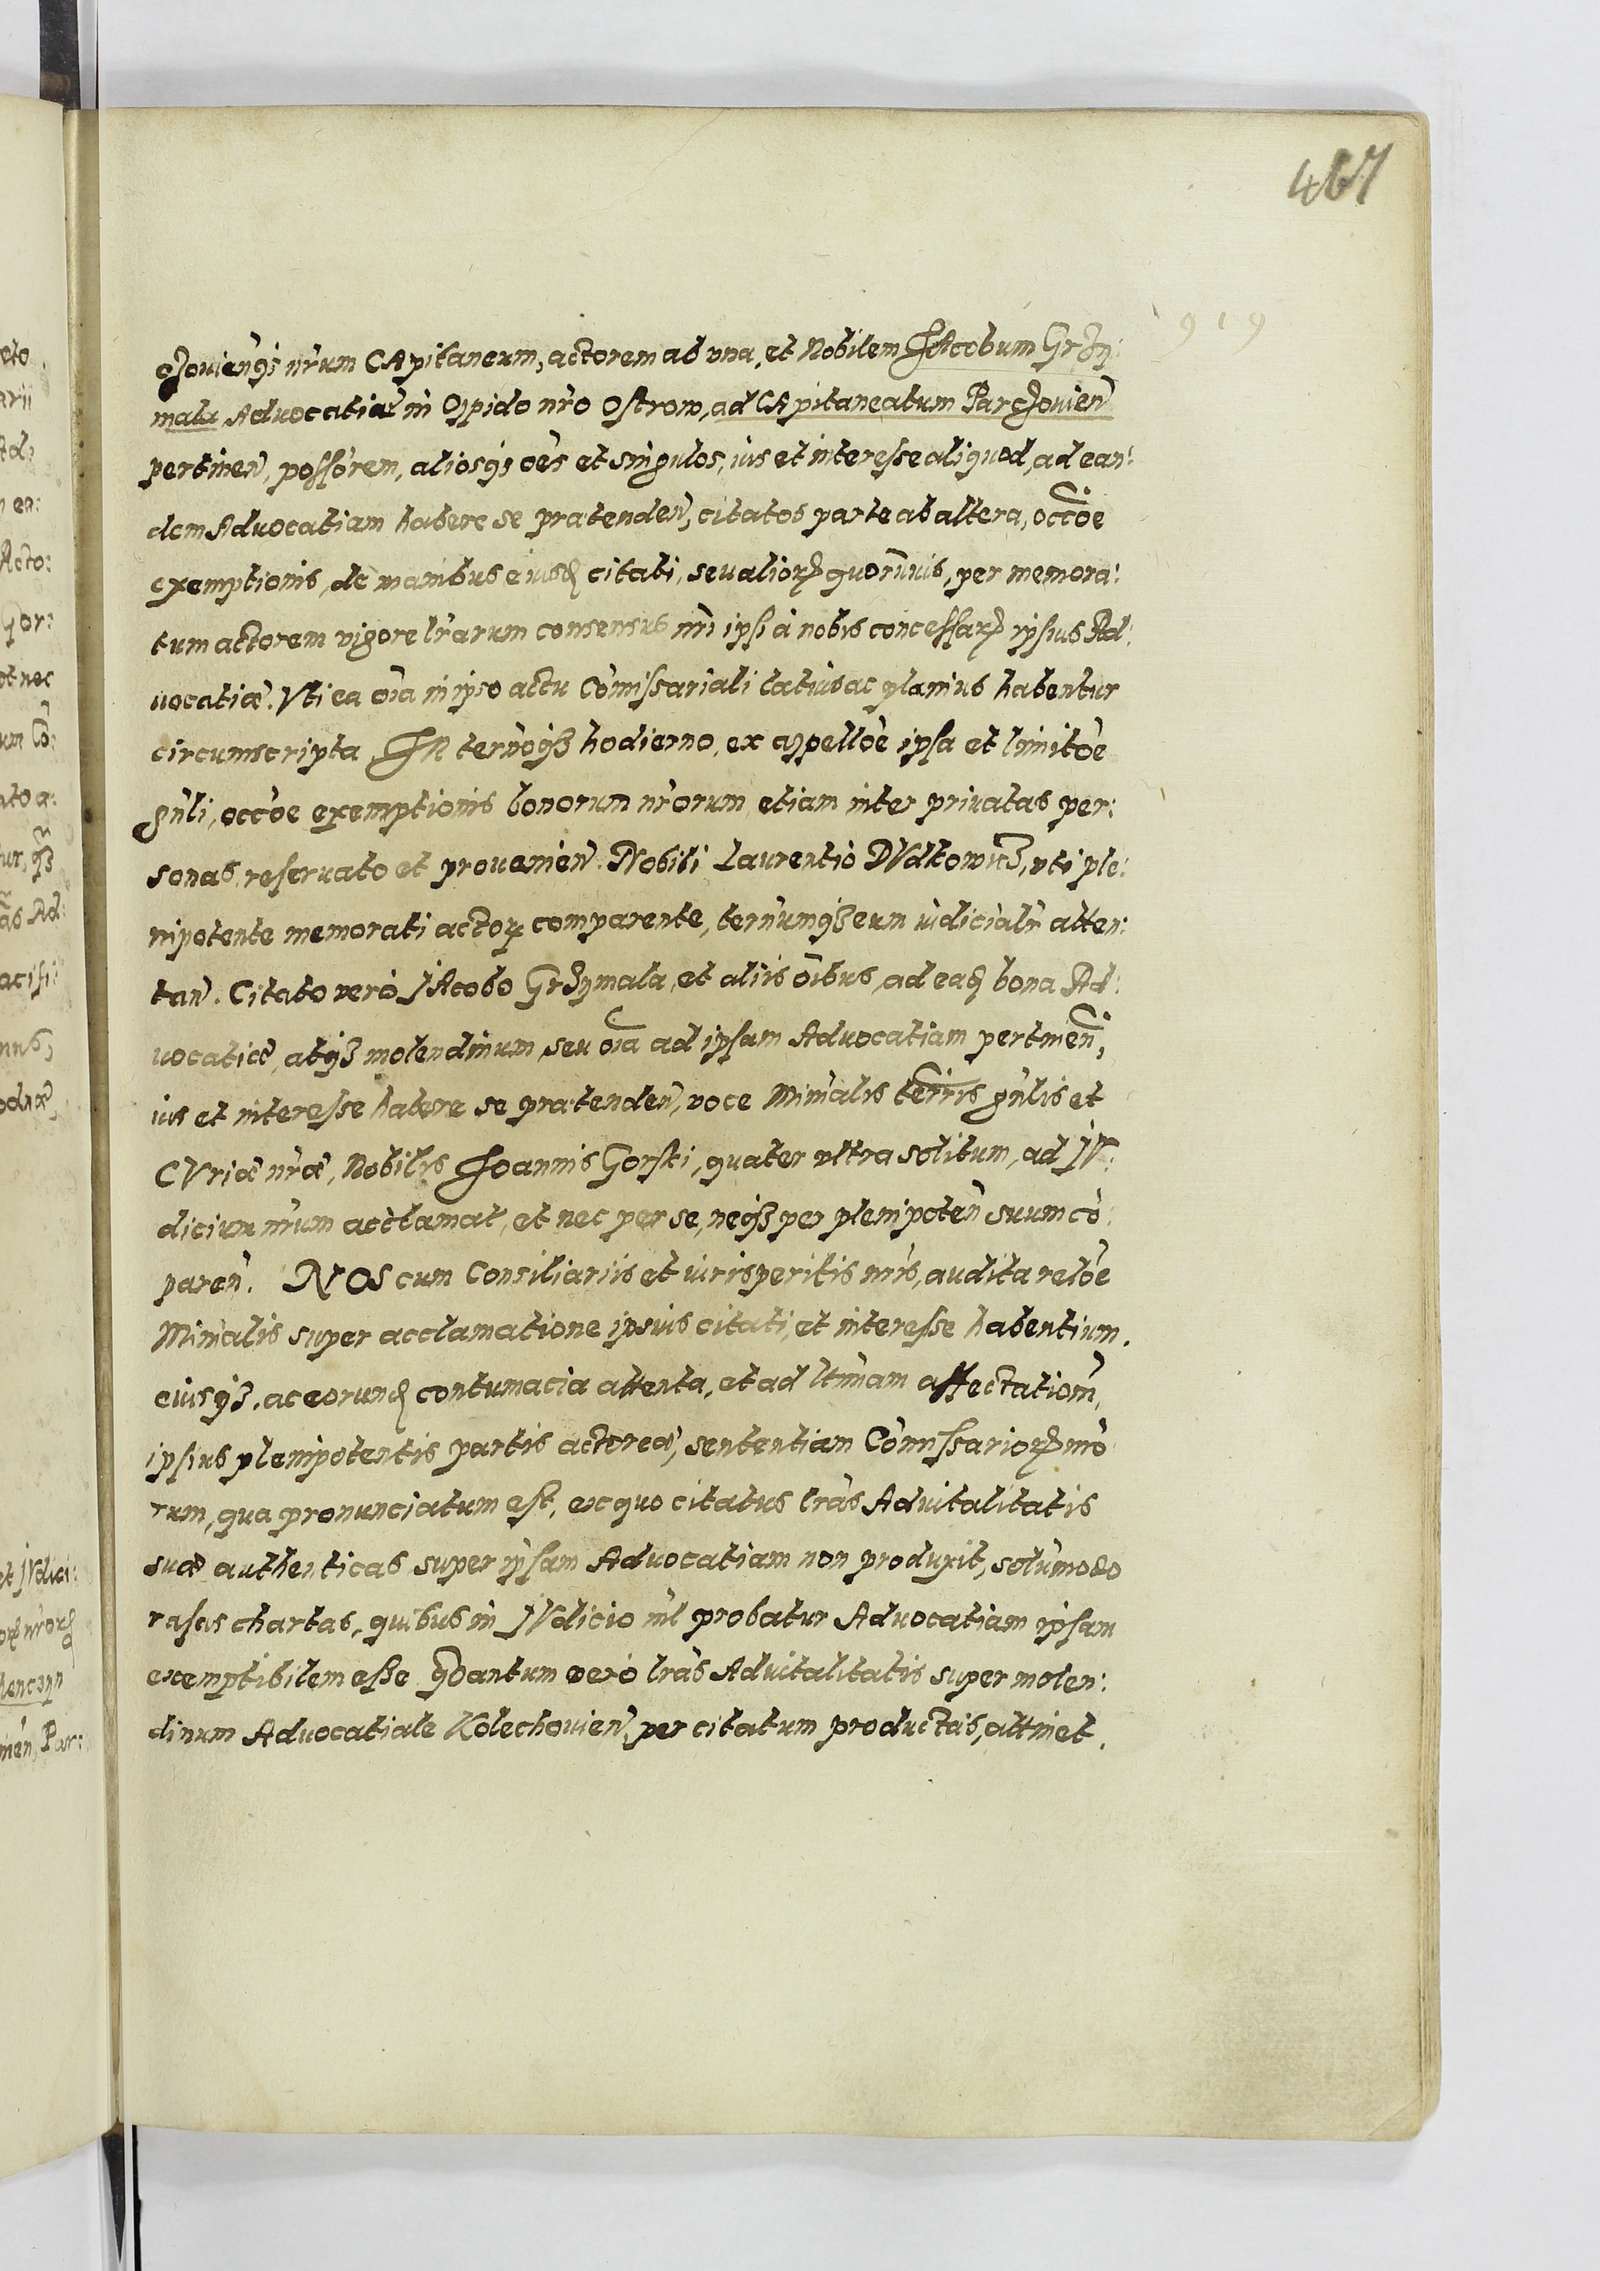 467
919
chouien̄q; nr̄um CApitaneum, actorem ab vna, et Nobilem JAcobum Grzy:
mala Aduocatiæ in Oppido nr̄o Ostrow, ad CApitaneatum Parchouien̄
pertinen̄, possōrem, aliosq; oēs et singulos, ius et interesse aliquod, ad ean:
dem Aduocatiam habere se prætenden̄, citatos parte ab altera, occōe
exemptionis, de manibus eiusd citati, seu alioꝝ quorūuis, per memora:
tum actorem vigore lr̄arum consensus nr̄i ipsi à nobis concessaꝝ ipsius Ad:
uocatiæ. Vti ea oīa in ipso actu Cōmissariali latius ac planius habentur
circumscripta. IN ter̄noq; hodierno, ex appellōe ipsa et limitōe
gn̄li, occōe exemptionis bonorum nr̄orum, etiam inter priuatas per:
sonas, reseruato et prouenien̄. Nobili Laurentio DVdkowicz, vti ple:
nipotente memorati actoꝝ comparente, ter̄numq; eum iudicialr̄ atten:
tan̄. Citato verò JAcobo Grzymala, et aliis oībus, ad ead bona Ad:
uocatiæ, atq; molendinum, seu oīa ad ipsam Aduocatiam pertinen̄,
ius et interesse habere se prætenden̄, voce Min̄alis ter̄ris gn̄lis et
CVriæ nr̄æ, Nobilis Joannis Gorski, quater vltra solitum, ad JV:
dicium nr̄um acclamat, et nec per se, neq; per plenipoten̄ suum cō:
paren̄. NOS cum Consiliariis et iurisperitis nr̄is, audita relōe
Min̄alis super acclamatione ipsius citati, et interesse habentium.
eiusq;, ac eorund contumacia attenta, et ad ltīmam affectationē,
ipsius plenipotentis partis actoreæ, sententiam Cōmissarioꝝ nr̄o
rum, qua pronunciatum est, ex quo citatus lr̄as Aduitalitatis
suæ authenticas super ipsam Aduocatiam non produxit, solūmodo
rasas chartas, quibus in JVdicio nīl probatur Aduocatiam ipsam
exemptibilem esse Quantum verò lr̄as Aduitalitatis super molen:
dinum Aduocatiale Kolechouien̄, per citatum productas, attinet.